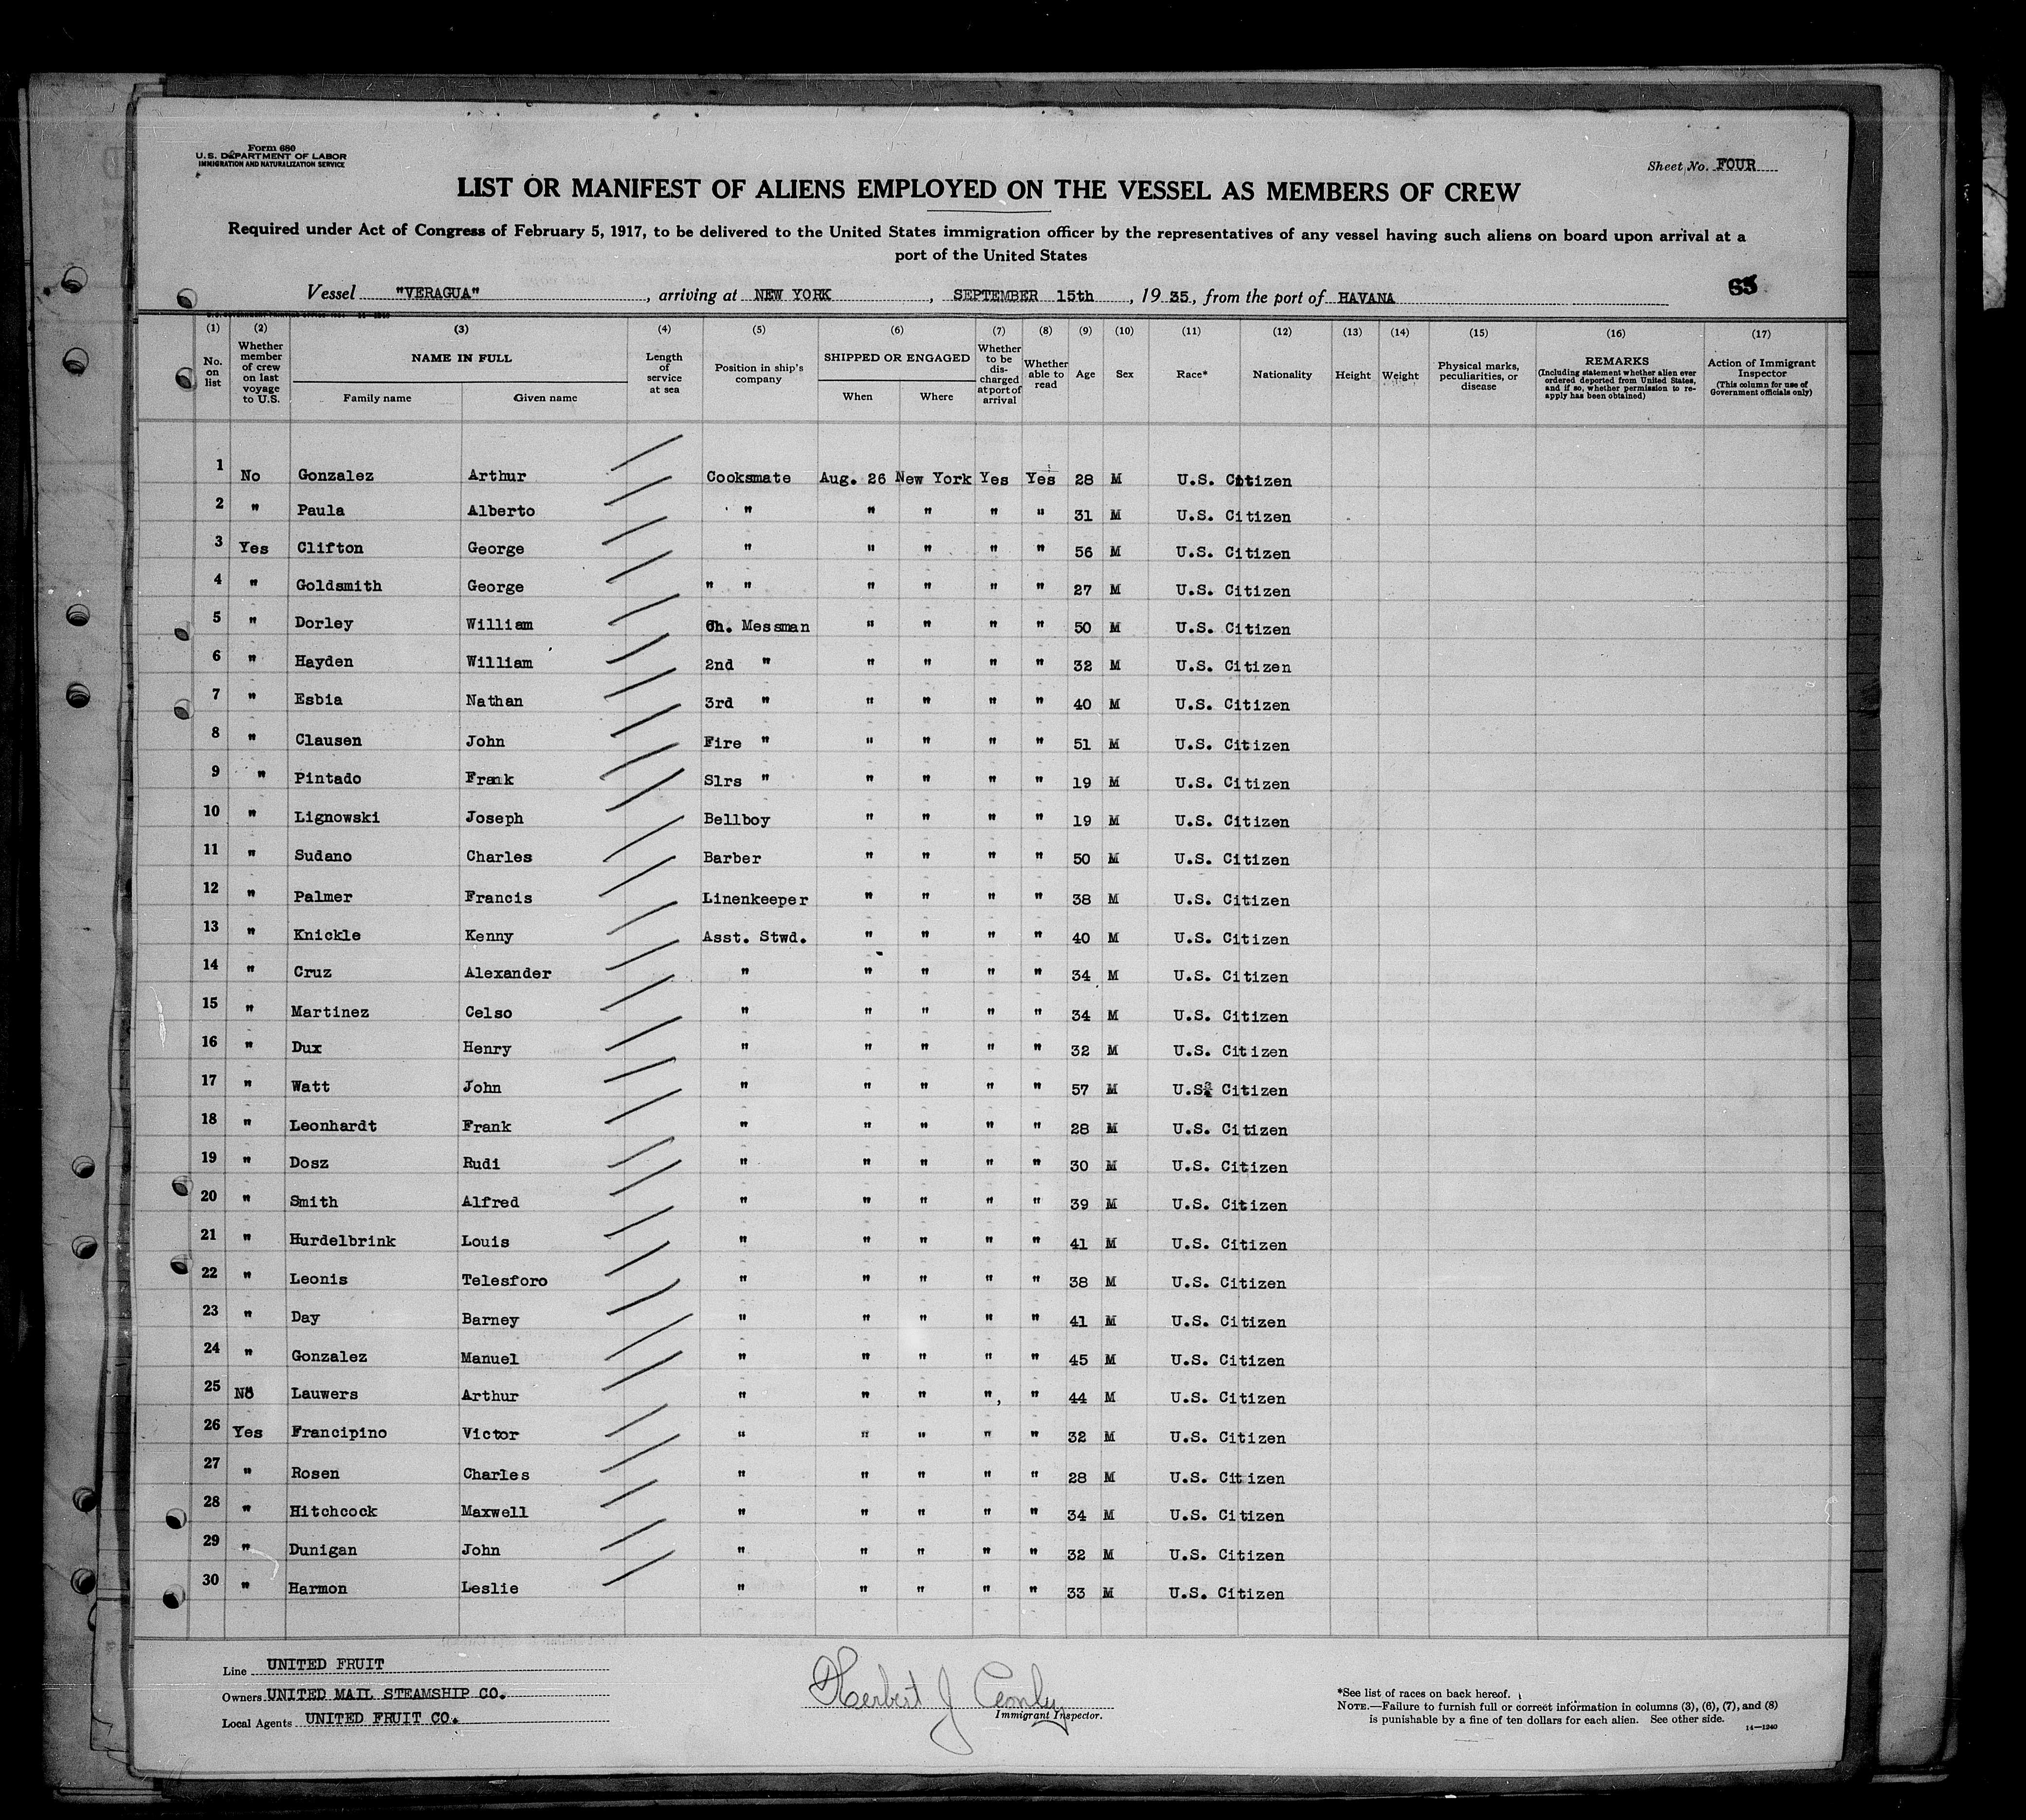 Form 680
U. S. DEPARTMENT OF LABOR
IMMIGRATION AND NATURALIZATION SERVICE
Sheet No. FOUR
LIST OR MANIFEST OF ALIENS EMPLOYED ON THE VESSEL AS MEMBERS OF CREW
Required under Act of Congress of February 5, 1917, to be delivered to the United States immigration officer by the representatives of any vessel having such aliens on board upon arrival at a
port of the United States
Vessel "VERAGUA", arriving at NEW YORK, SEPTEMBER 15th, 1935, from the port of HAVANA
(1) (2) (3) (4) (5) (6) (7) (8) (9) (10) (11) (12) (13) (14) (15) (16) (17)
No. on list
Whether member of crew on last voyage to U.S.
NAME IN FULL
Family name
Given name
Length of service at sea
Position in ship's company
SHIPPED OR ENGAGED
When
Where
Whether to be discharged at port of arrival
Whether able to read
Age
Sex
Race*
Nationality
Height
Weight
Physical marks, peculiarities, or disease
REMARKS
(Including statement whether alien ever ordered deported from United States, and if so, whether permission to reapply has been obtained)
Action of Immigrant Inspector
(This column for use of Government officials only)
1 No Gonzalez Arthur Cooksmate Aug. 26 New York Yes Yes 28 M U.S. Citizen
2 " Paula Alberto " " " " " 31 M U.S. Citizen
3 Yes Clifton George " " " " " 56 M U.S. Citizen
4 " Goldsmith George " " " " " " 27 M U.S. Citizen
5 " Dorley William Ch. Messman " " " " 50 M U.S. Citizen
6 " Hayden William 2nd " " " " " 32 M U.S. Citizen
7 " Esbia Nathan 3rd " " " " " 40 M U.S. Citizen
8 " Clausen John Fire " " " " " 51 M U.S. Citizen
9 " Pintado Frank Slrs " " " " " 19 M U.S. Citizen
10 " Lignowski Joseph Bellboy " " " " 19 M U.S. Citizen
11 " Sudano Charles Barber " " " " 50 M U.S. Citizen
12 " Palmer Francis Linenkeeper " " " " 38 M U.S. Citizen
13 " Knickle Kenny Asst. Stwd. " " " " 40 M U.S. Citizen
14 " Cruz Alexander " " " " " 34 M U.S. Citizen
15 " Martinez Celso " " " " " 34 M U.S. Citizen
16 " Dux Henry " " " " " 32 M U.S. Citizen
17 " Watt John " " " " " 57 M U.S. Citizen
18 " Leonhardt Frank " " " " " 28 M U.S. Citizen
19 " Dosz Rudi " " " " " 30 M U.S. Citizen
20 " Smith Alfred " " " " " 39 M U.S. Citizen
21 " Hurdelbrink Louis " " " " " 41 M U.S. Citizen
22 " Leonis Telesforo " " " " " 38 M U.S. Citizen
23 " Day Barney " " " " " 41 M U.S. Citizen
24 " Gonzalez Manuel " " " " " 45 M U.S. Citizen
25 No Lauwers Arthur " " " ", " 44 M U.S. Citizen
26 Yes Francipino Victor " " " " " 32 M U.S. Citizen
27 " Rosen Charles " " " " " 28 M U.S. Citizen
28 " Hitchcock Maxwell " " " " " 34 M U.S. Citizen
29 " Dunigan John " " " " " 32 M U.S. Citizen
30 " Harmon Leslie " " " " " 33 M U.S. Citizen
Line UNITED FRUIT
Owners UNITED MAIL STEAMSHIP CO.
Local Agents UNITED FRUIT CO.
Herbert J
Immigrant Inspector.
*See list of races on back hereof.
NOTE.—Failure to furnish full or correct information in columns (3), (6), (7), and (8)
is punishable by a fine of ten dollars for each alien. See other side.
14—1240